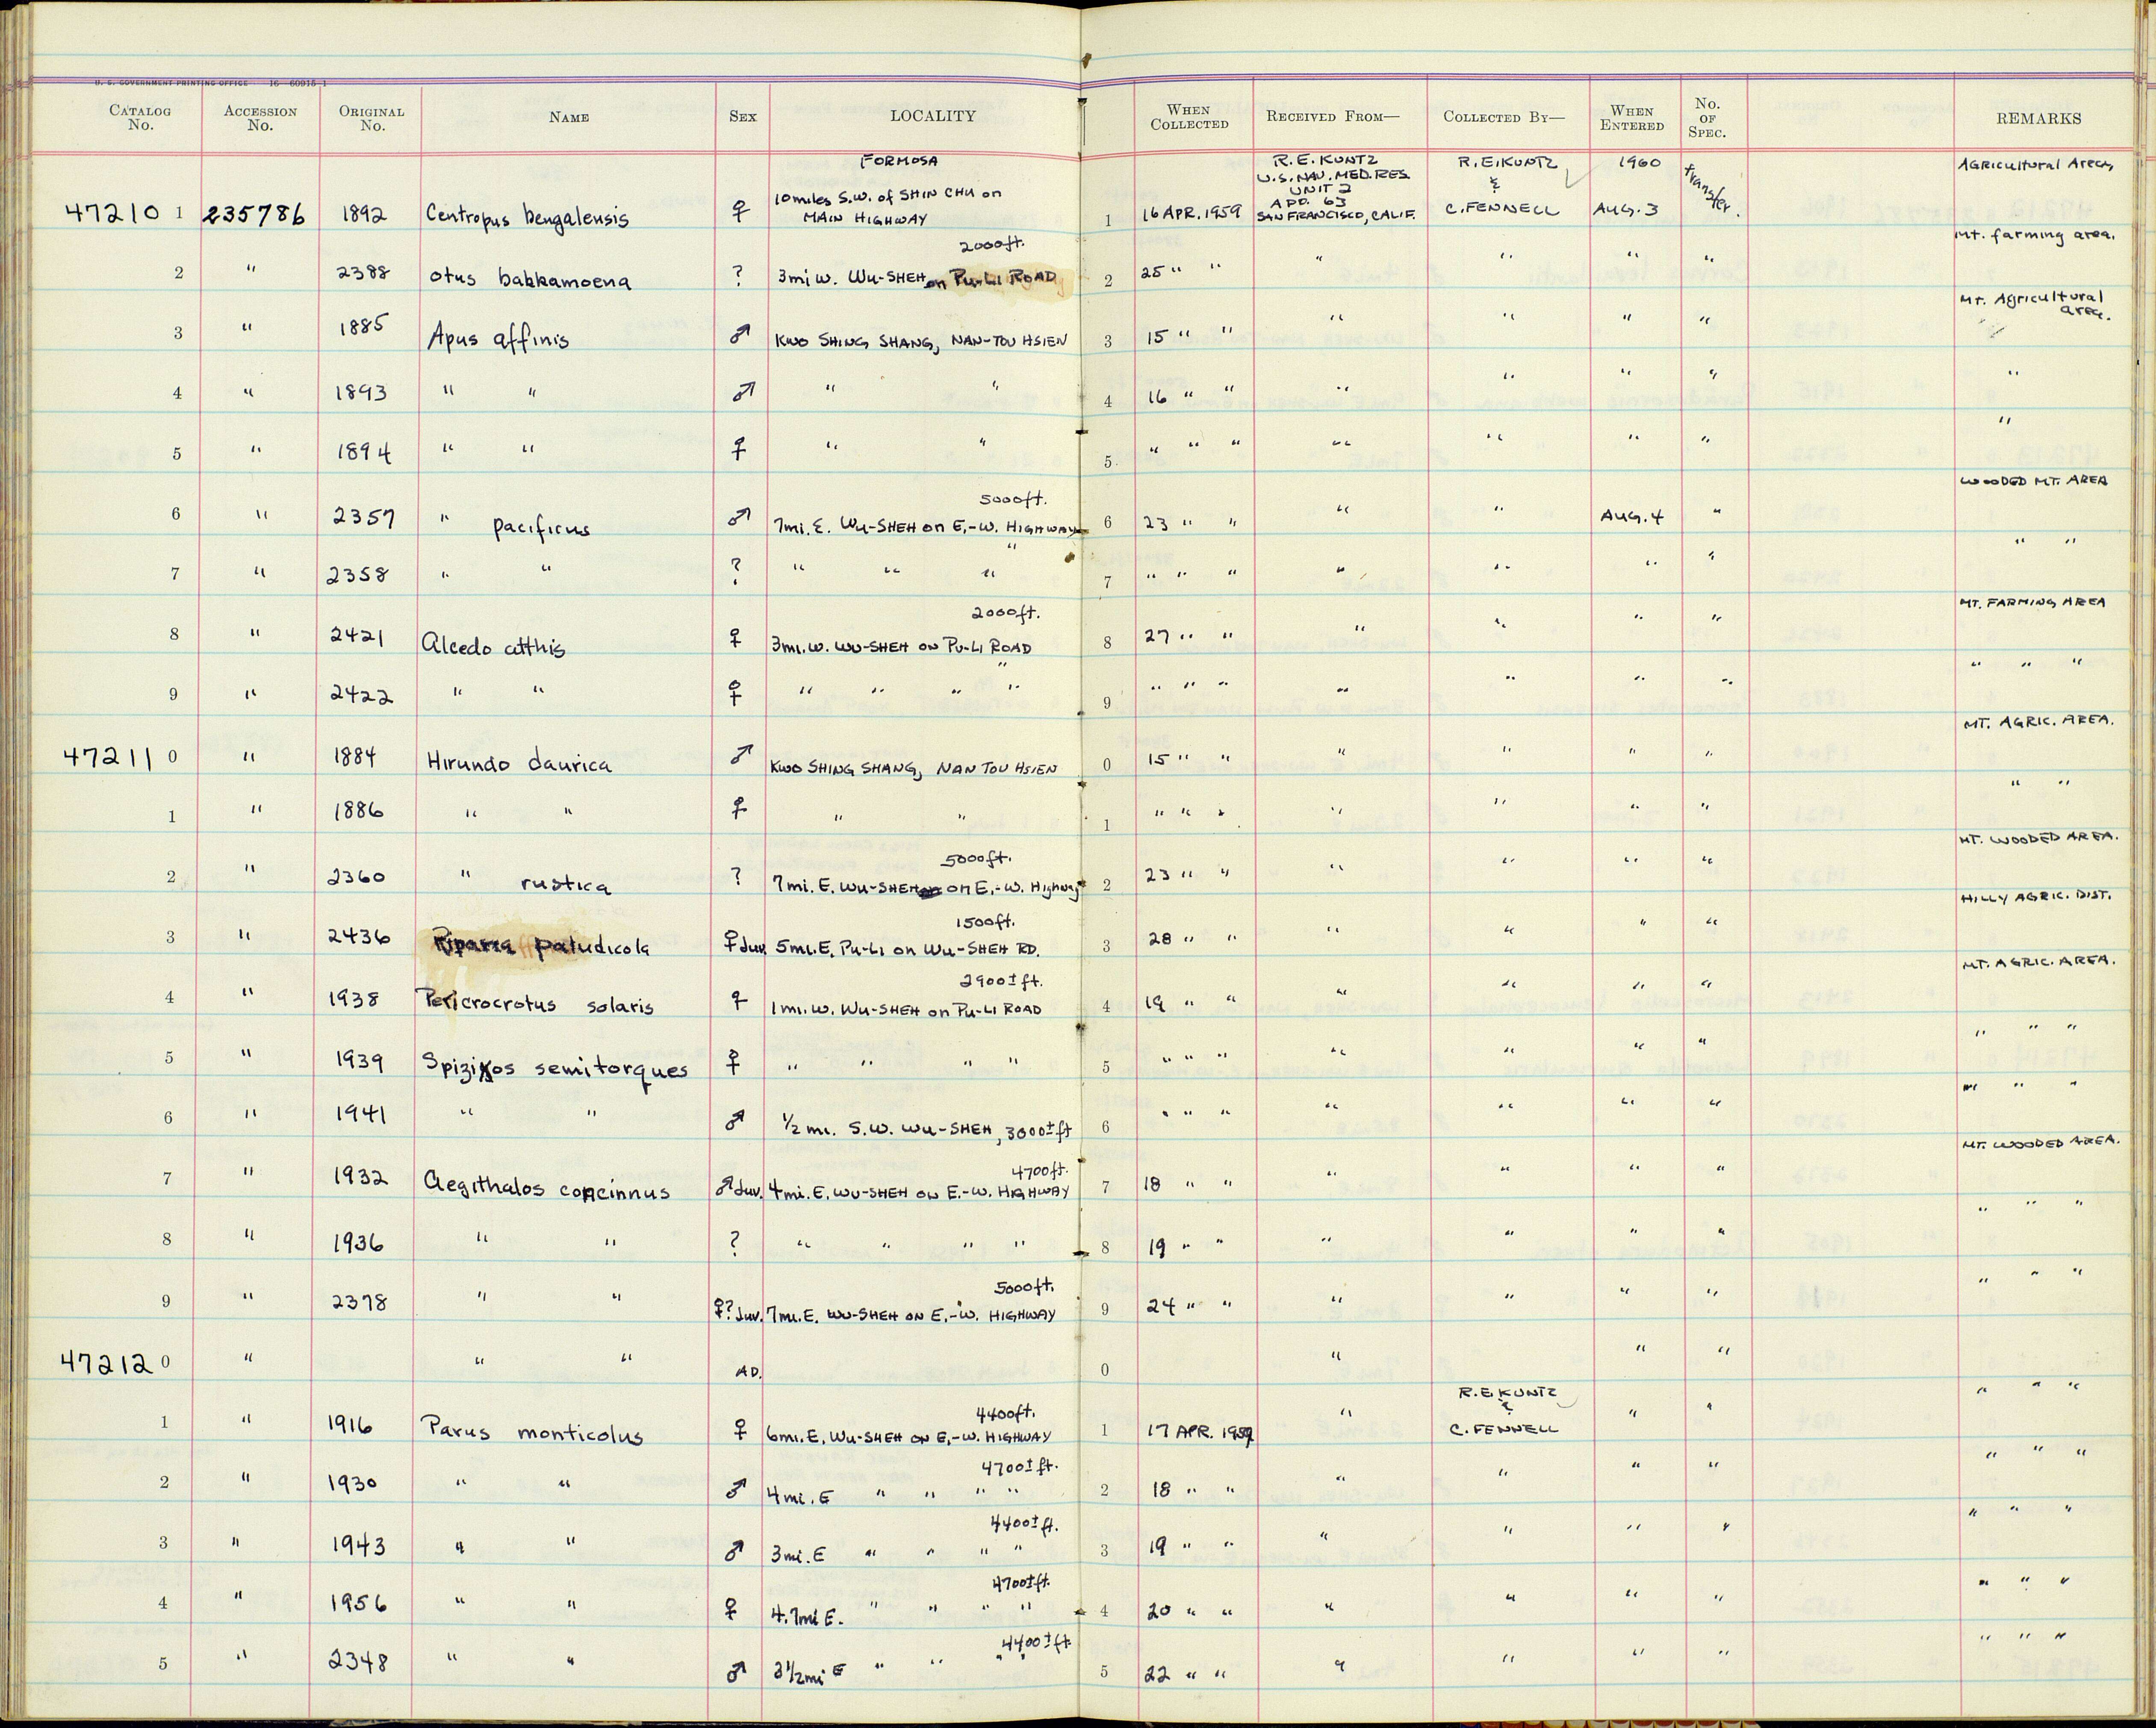 U. S. GOVERNMENT PRINTING OFFICE 16—60915-1
CATALOG No. ACCESSION No. ORIGINAL No. NAME SEX LOCALITY WHEN COLLECTED RECEIVED FROM— COLLECTED BY— WHEN ENTERED No. OF SPEC. REMARKS
FORMOSA R. E. KUNTZ R. E. KUNTZ 1960 AGRicultural Area,
U.S. NAV. MED. RES. & transfer.
10 miles S.W. of SHIN CHU on UNIT 2
47210 1 235786 1892 Centropus bengalensis ♀ MAIN HIGHWAY 1 16 APR. 1959 A.P.O. 63 C. FENNELL AUG. 3
SAN FRANCISCO, CALIF.
2000ft. Mt. farming area.
2 " 2388 Otus bakkamoena ? 3mi W. WU-SHEH on PU-LI ROAD 2 25 " " " " " "
Mt. Agricultural area.
3 " 1885 Apus affinis ♂ KWO SHING SHANG, NAN-TOU HSIEN 3 15 " " " " " "
4 " 1893 " " ♂ " " 4 16 " " " " " " "
5 " 1894 " " ♀ " " 5 " " " " " " " "
5000ft. WOODED MT. AREA
6 " 2357 " pacificus ♂ 7mi. E. WU-SHEH on E.-W. HIGHWAY 6 23 " " " " AUG. 4 "
"
7 " 2358 " " ? " " " 7 " " " " " " " " "
2000ft. MT. FARMING AREA
8 " 2421 Alcedo atthis ♀ 3mi. W. WU-SHEH ON PU-LI ROAD 8 27 " " " " " "
"
9 " 2422 " " ♀ " " " " 9 " " " " " " " " " "
MT. AGRIC. AREA.
47211 0 " 1884 Hirundo daurica ♂ KWO SHING SHANG, NAN TOU HSIEN 0 15 " " " " " "
1 " 1886 " " ♀ " " 1 " " " " " " " " "
5000ft. MT. WOODED AREA.
2 " 2360 " rustica ? 7mi. E. WU-SHEH on E.-W. Highway 2 23 " " " " " "
1500ft. HILLY AGRIC. DIST.
3 " 2436 Riparia paludicola ♀ Juv. 5mi. E. PU-LI on WU-SHEH RD. 3 28 " " " " " "
2900±ft. MT. AGRIC. AREA.
4 " 1938 Pericrocotus solaris ♀ 1mi. W. WU-SHEH on PU-LI ROAD 4 19 " " " " " "
5 " 1939 Spizixos semitorques ♀ " " " " 5 " " " " " " " " " "
6 " 1941 " " ♂ 1/2 mi. S.W. WU-SHEH, 3000±ft 6 " " " " " " " " " "
4700ft. MT. WOODED AREA.
7 " 1932 Aegithalos concinnus ♂ Juv. 4mi. E. WU-SHEH ON E.-W. HIGHWAY 7 18 " " " " " "
8 " 1936 " " ? " " " " 8 19 " " " " " " " " "
5000ft.
9 " 2378 " " ♀? Juv. 7mi. E. WU-SHEH ON E.-W. HIGHWAY 9 24 " " " " " " " " "
47212 0 " " " AD. 0 " " "
4400ft. R. E. KUNTZ " " "
&
1 " 1916 Parus monticolus ♀ 6mi. E. WU-SHEH ON E.-W. HIGHWAY 1 17 APR. 1959 " C. FENNELL " "
4700±ft.
2 " 1930 " " ♂ 4mi. E " " " " 2 18 " " " " " " " " "
4400±ft.
3 " 1943 " " ♂ 3mi. E " " " " 3 19 " " " " " " " " "
4700±ft.
4 " 1956 " " ♀ 4.7mi E. " " " " 4 20 " " " " " " " " "
4400±ft.
5 " 2348 " " ♂ 3 1/2mi E " " " " 5 22 " " " " " " " " "